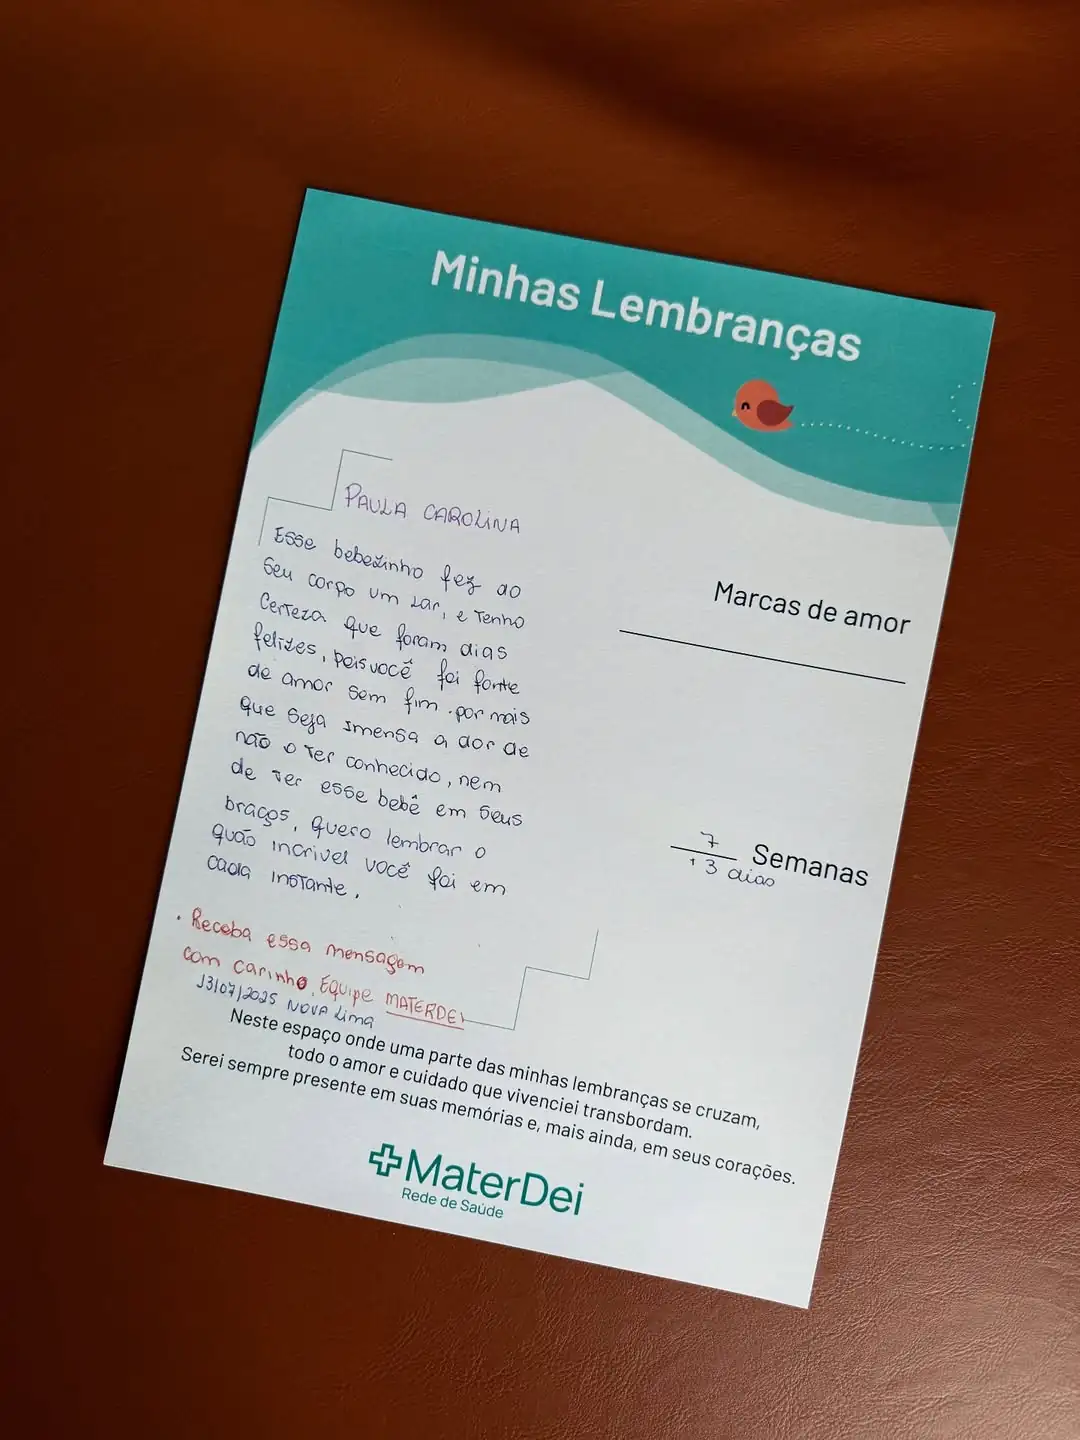 Minhas Lembranças
PAULA CAROLINA
Esse bebezinho fez ao
seu corpo um lar, e tenho
certeza que foram dias
felizes, pois você foi fonte
de amor sem fim. por mais
que seja imensa a dor de
não o ter conhecido, nem
de ter esse bebê em seus
braços, quero lembrar o
quão incrivel você foi em
cada instante.
. Receba essa mensagem
com carinho, Equipe MATERDEI
13/07/2025 NOVA Lima
Marcas de amor
7 Semanas
+3 dias
Neste espaço onde uma parte das minhas lembranças se cruzam,
todo o amor e cuidado que vivenciei transbordam.
Serei sempre presente em suas memórias e, mais ainda, em seus corações.
MaterDei
Rede de Saúde